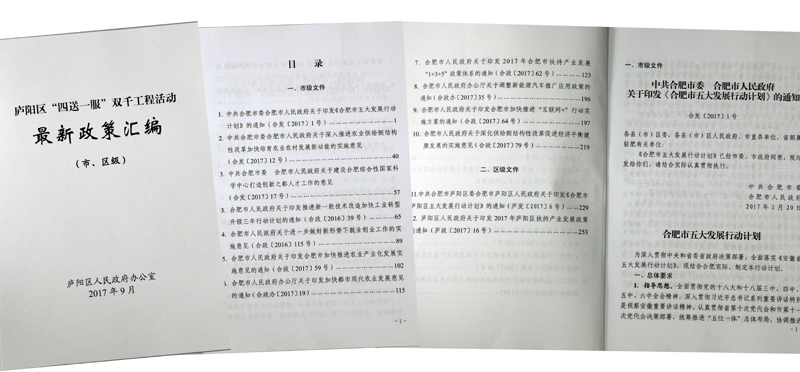 庐阳区“四送一服”双千工程活动
最新政策汇编
（市、区级）
庐阳区人民政府办公室
2017年9月
目 录
一、市级文件
1. 中共合肥市委合肥市人民政府关于印发《合肥市五大发展行动
计划》的通知（合发〔2017〕1号）1
2. 中共合肥市委合肥市人民政府关于深入推进农业供给侧结构
性改革加快培育农业农村发展新动能的实施意见
（合发〔2017〕12号）40
3. 中共合肥市委 合肥市人民政府关于建设合肥综合性国家科
学中心打造创新之都人才工作的意见
（合发〔2017〕17号）57
3. 合肥市人民政府关于印发推进新一轮技术改造加快工业转型
升级三年行动计划的通知（合政〔2016〕39号）65
4. 合肥市人民政府关于进一步做好新形势下就业创业工作的实
施意见（合政〔2016〕115号）89
5. 合肥市人民政府关于印发合肥市加快推进农业产业化发展实
施意见的通知（合政〔2017〕59号）102
6. 合肥市人民政府办公厅关于印发加快都市现代农业发展意见
的通知（合政办〔2017〕19）115
- 1 -
7. 合肥市人民政府关于印发2017年合肥市扶持产业发展
“1+3+5”政策体系的通知（合政〔2017〕62号）123
8. 合肥市人民政府办公厅关于调整新能源汽车推广应用政策的
通知（合政办〔2017〕35号）196
9. 合肥市人民政府关于印发合肥市加快推进“互联网+”行动
实施方案的通知（合政〔2017〕64号）197
10. 合肥市人民政府关于深化供给侧结构性改革促进经济平衡健
康发展的实施意见（合政〔2017〕79号）219
二、区级文件
11.中共合肥市庐阳区委合肥市庐阳区人民政府关于印发《合肥市
庐阳区五大发展行动计划》的通知（庐发〔2017〕6号）229
2. 庐阳区人民政府关于印发2017年庐阳区扶持产业发展政策
的通知（庐政〔2017〕16号）253
一、市级文件
中共合肥市委 合肥市人民政府
关于印发《合肥市五大发展行动计划》的通知
合发〔2017〕1号
各县（市）区委、各县（市）区人民政府，市直各单位，省部属
驻肥有关单位：
《合肥市五大发展行动计划》已经市委、市政府同意，现
发给你们，请结合实际认真贯彻执行。
中共合肥市
合肥市人民政
2017年1月20日
合肥市五大发展行动计划
为深入贯彻中央和省委省政府决策部署，全面落实《安徽省
五大发展行动计划》，现结合合肥实际，制定本行动计划。
一、总体要求
1. 指导思想。全面贯彻党的十八大和十八届三中、四中、
五中、六中全会精神，深入贯彻习近平总书记系列重要讲话特别
是视察安徽重要讲话精神，认真贯彻省第十次党代会和市第十一
次党代会决策部署，统筹推进“五位一体”总体布局，协调推进
- 1